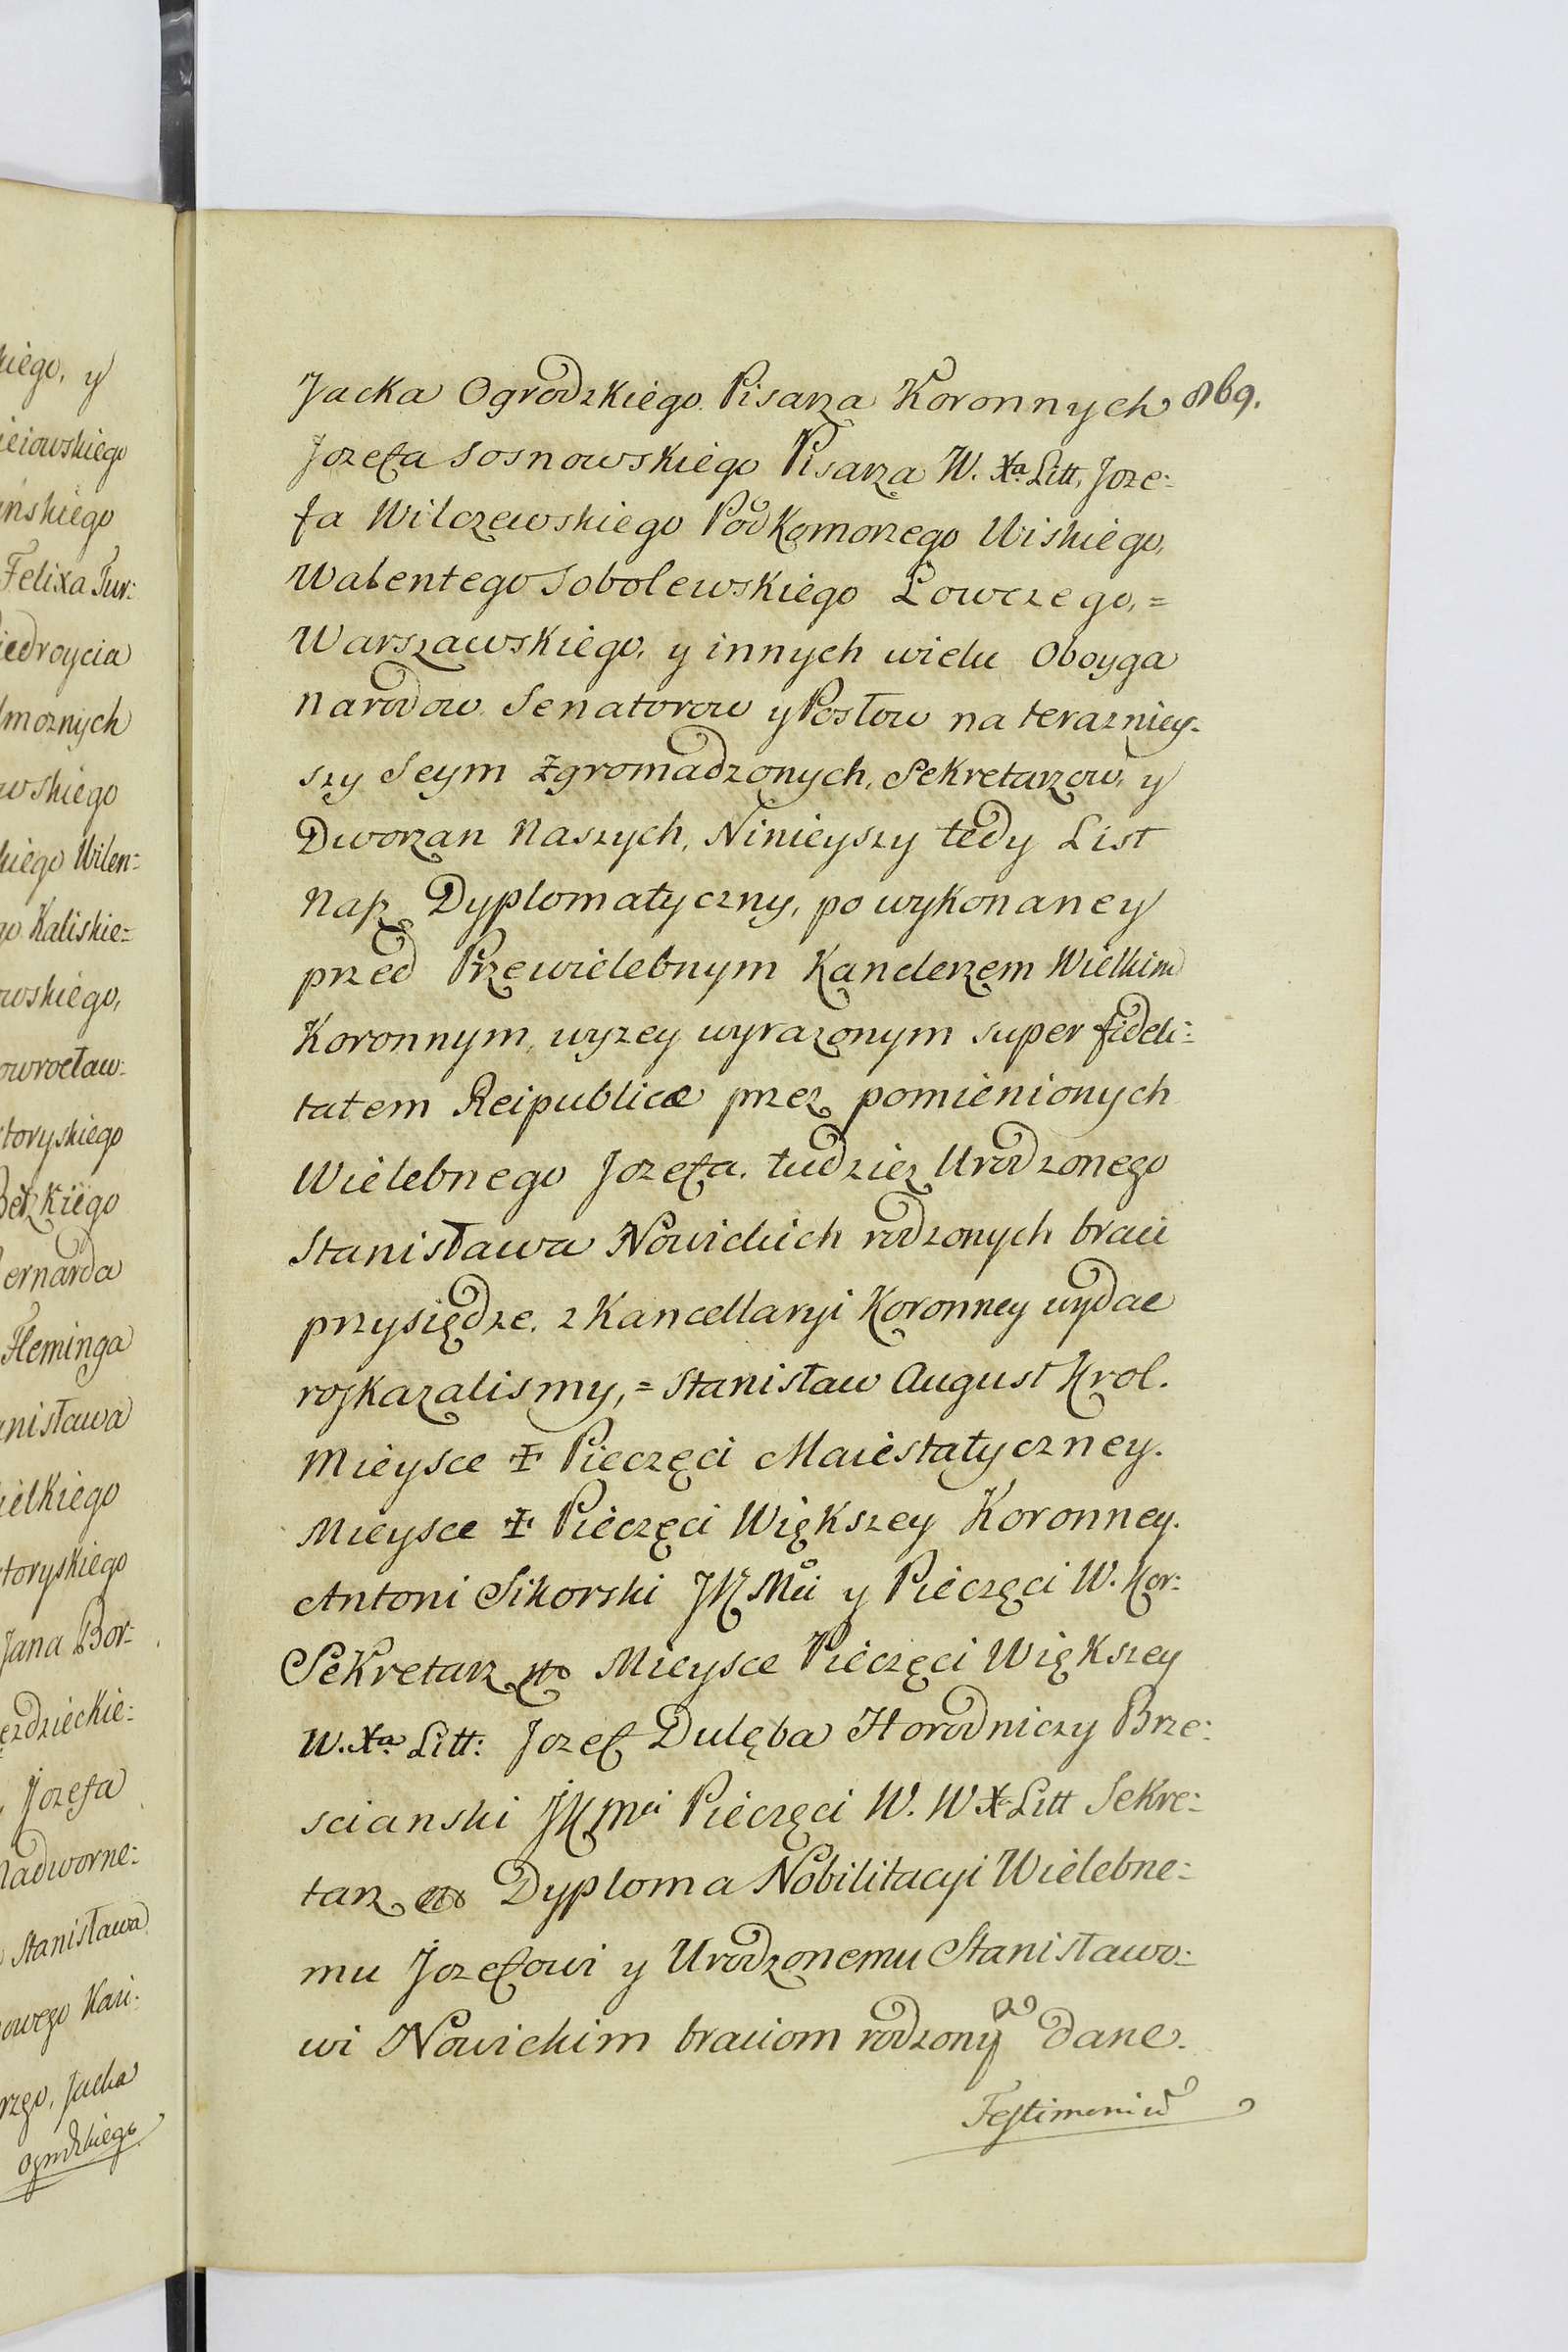 kiego, y
ieiowskiego
ińskiego
Felixa Tur:
iedroycia
lmoznych
wskiego
kiego Wilen:
go Kaliskie:
owskiego,
owrocław:
toryskiego
Betzkiego
ernarda
Fleminga
anisława
ielkiego
toryskiego
Jana Bor:
ezdzieckie:
Jozefa
Nadworne:
Stanisława
owego
rzgo, Jacka
Ogrodzkiego
Jacka Ogrodzkiego Pisarza Koronnych 869.
Jozefa Sosnowskiego Pisarza W. Xa. Litt. Joze:
fa Wilczewskiego Podkomorzego Wiskiego,
Walentego Sobolewskiego Łowczego, =
Warszawskiego, y innych wielu Oboyga
Narodow Senatorow y Posłow na terazniey:
szy Seym Zgromadzonych, Sekretarzow, y
Dworzan Naszych, Ninieyszy tedy List
Nasz Dyplomatyczny, po wykonaney
przed Przewielebnym Kanclerzem Wielkim
Koronnym, wyzey wyrazonym super fideli:
tatem Reipublicæ przez pomienionych
Wielebnego Jozefa, tudziez Urodzonego
Stanisława Nowickich rodzonych braci
przysiędze, z Kancellaryi Koronney wydac
roskazalismy, = Stanisław August Krol.
Mieysce ✠ Pieczęci Maiestatyczney.
Mieysce ✠ Pieczęci Większey Koronney.
Antoni Sikorski JKMci y Pieczęci W. Kor:
Sekretarz mp Mieysce Pieczęci Większey
W. Xa. Litt: Jozef Dulęba Horodniczy Brze:
scianski JKMci Pieczęci W. W X. Litt Sekre:
tarz mp Dyploma Nobilitacyi Wielebne:
mu Jozefowi y Urodzonemu Stanisławo:
wi Nowickim braciom rodzony dane.
Testimoniu